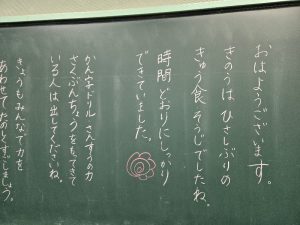 おはようございます。
きのうは ひさしぶりの
きゅう食、そうじでしたね。
時間どおりにしっかり
できていました。
かん字ドリル さんすうの力
さくぶんちょうをもってきて
いる人は出してくださいね。
きょうもみんなで力を
あわせてたのしくすごしましょう。